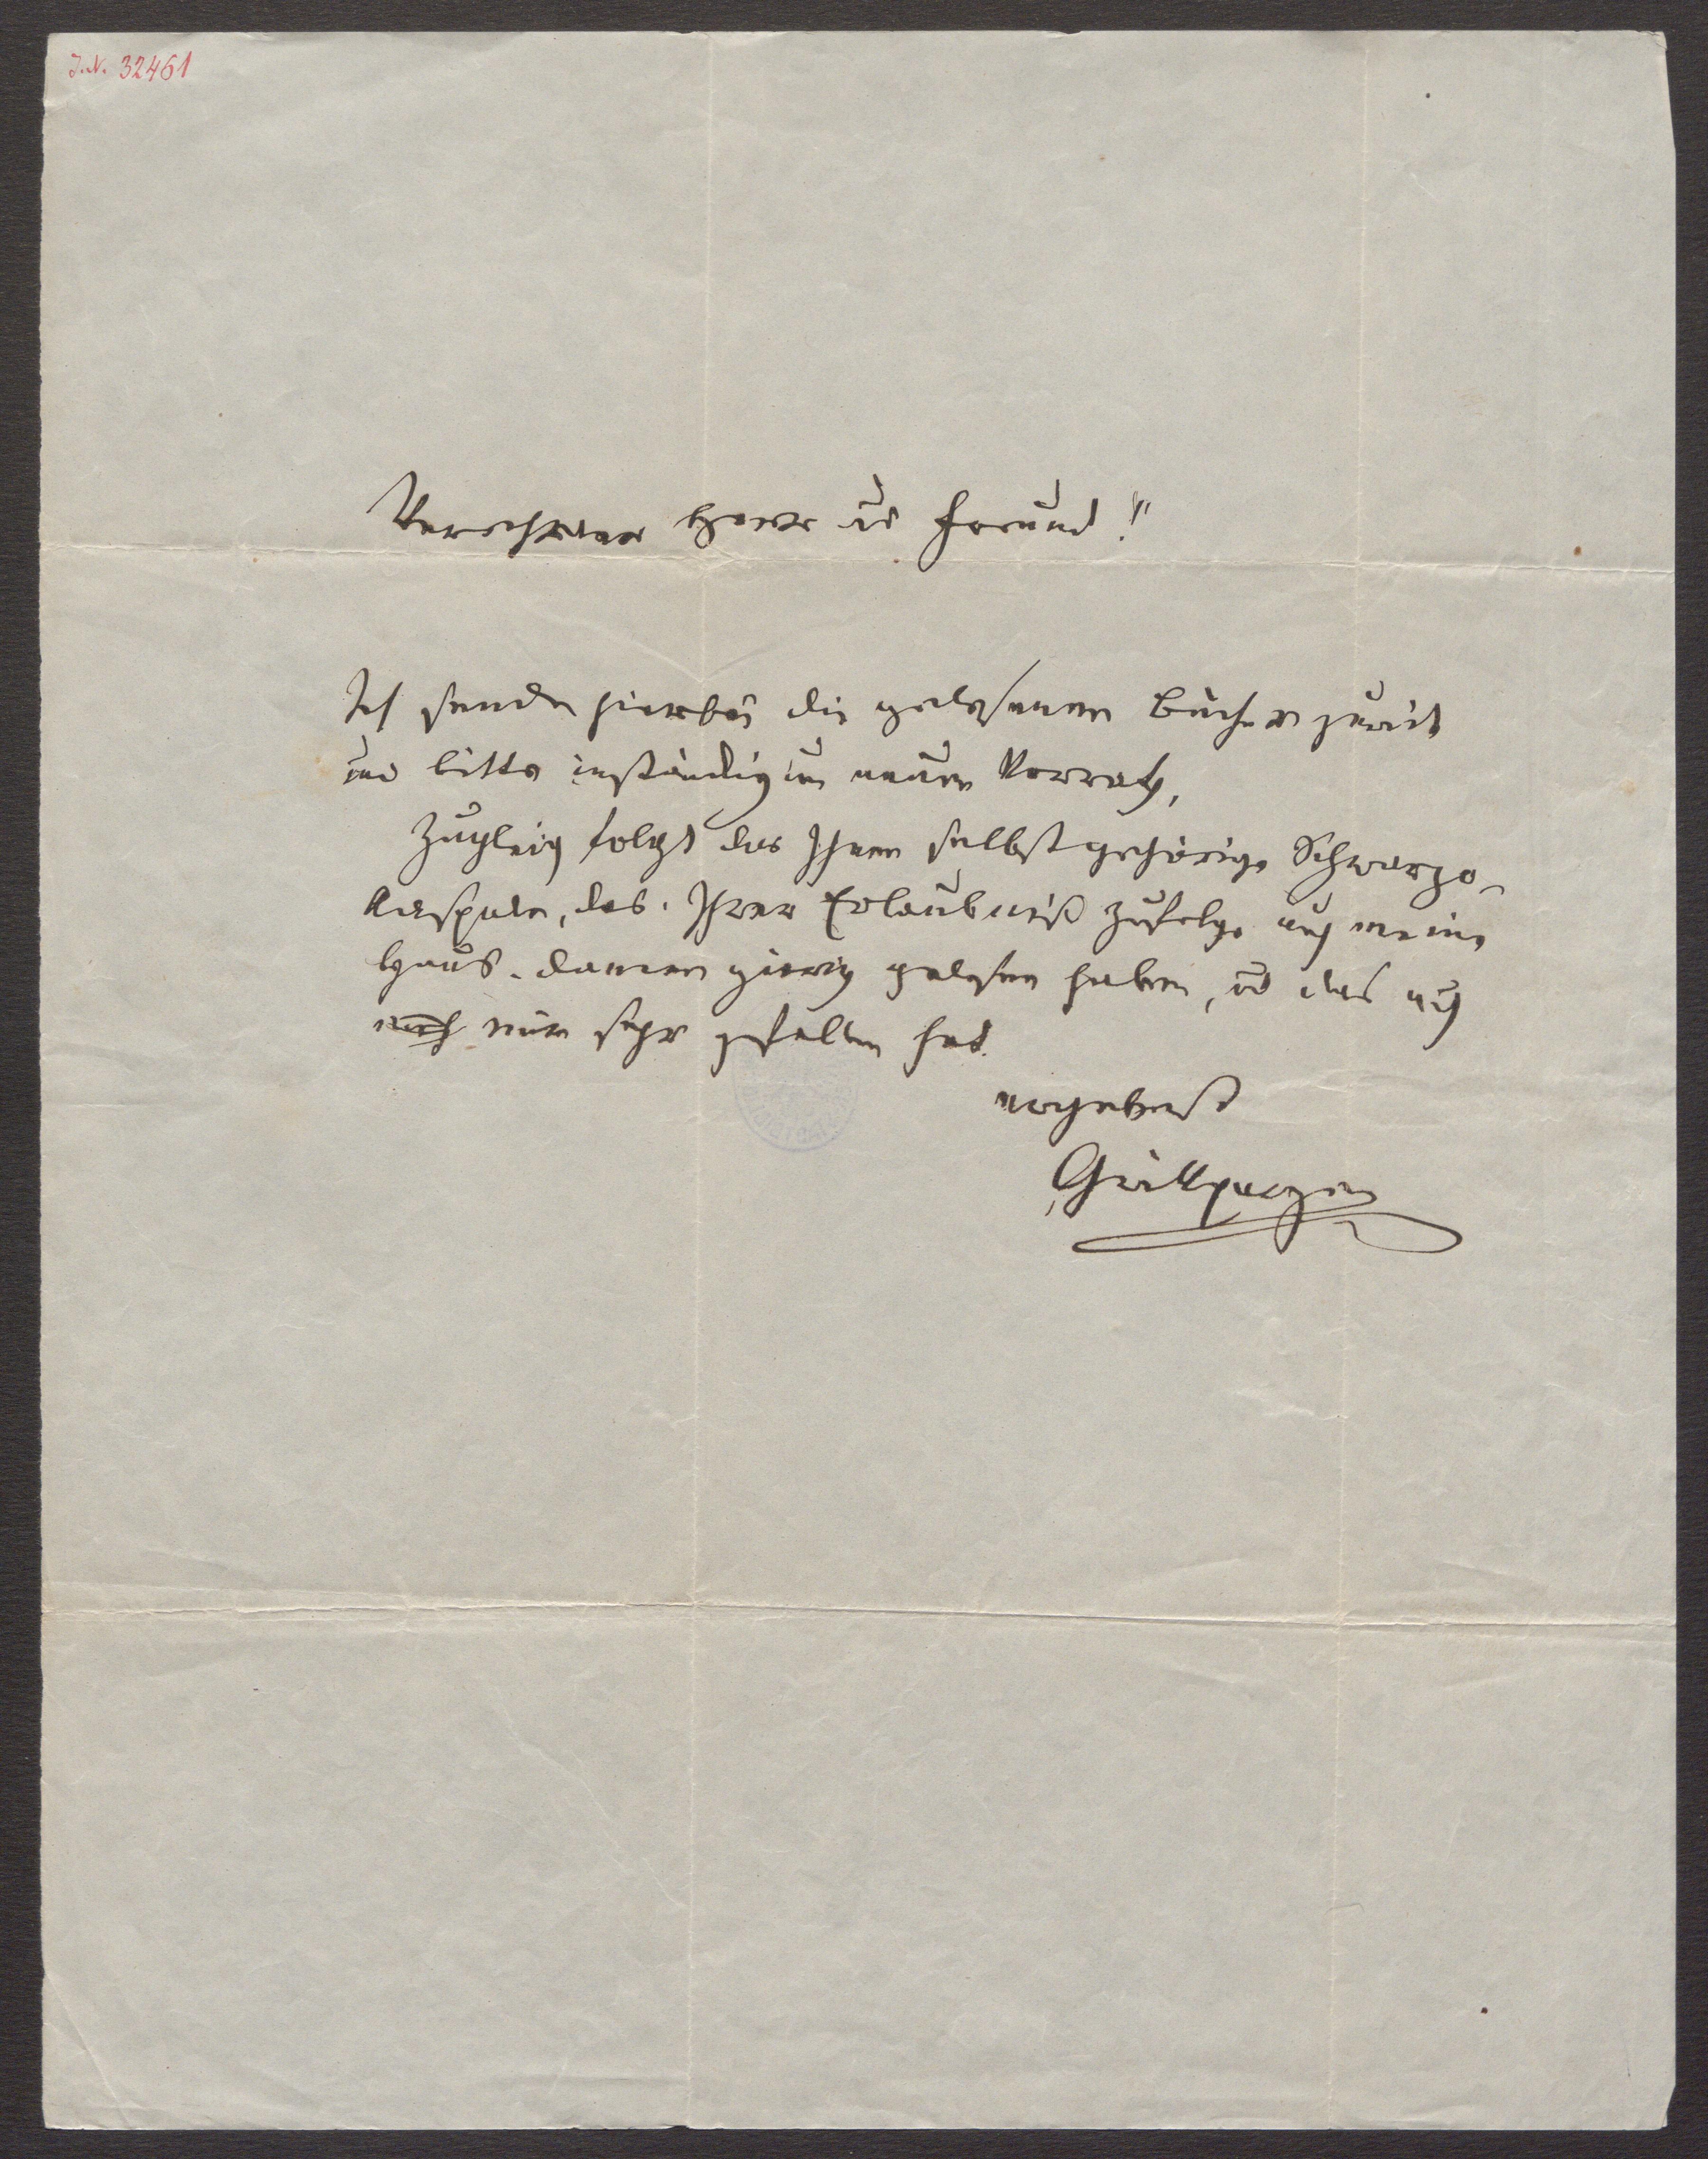 J.N. 32461
Verehrter Herr ud Freund!
Ich sende hierbei die gelesenen Bücher zurück
und bitte inständig um neuen Vorrath.
Zugleich folgt das Ihnen selbst gehörige Schwarzo-
das. Ihrer Erlaubniß zufolge auch meine
Haus-damen gierig gelesen haben, ud das auch
mir sehr gefallen hat.
ergebenst
Grillparzer